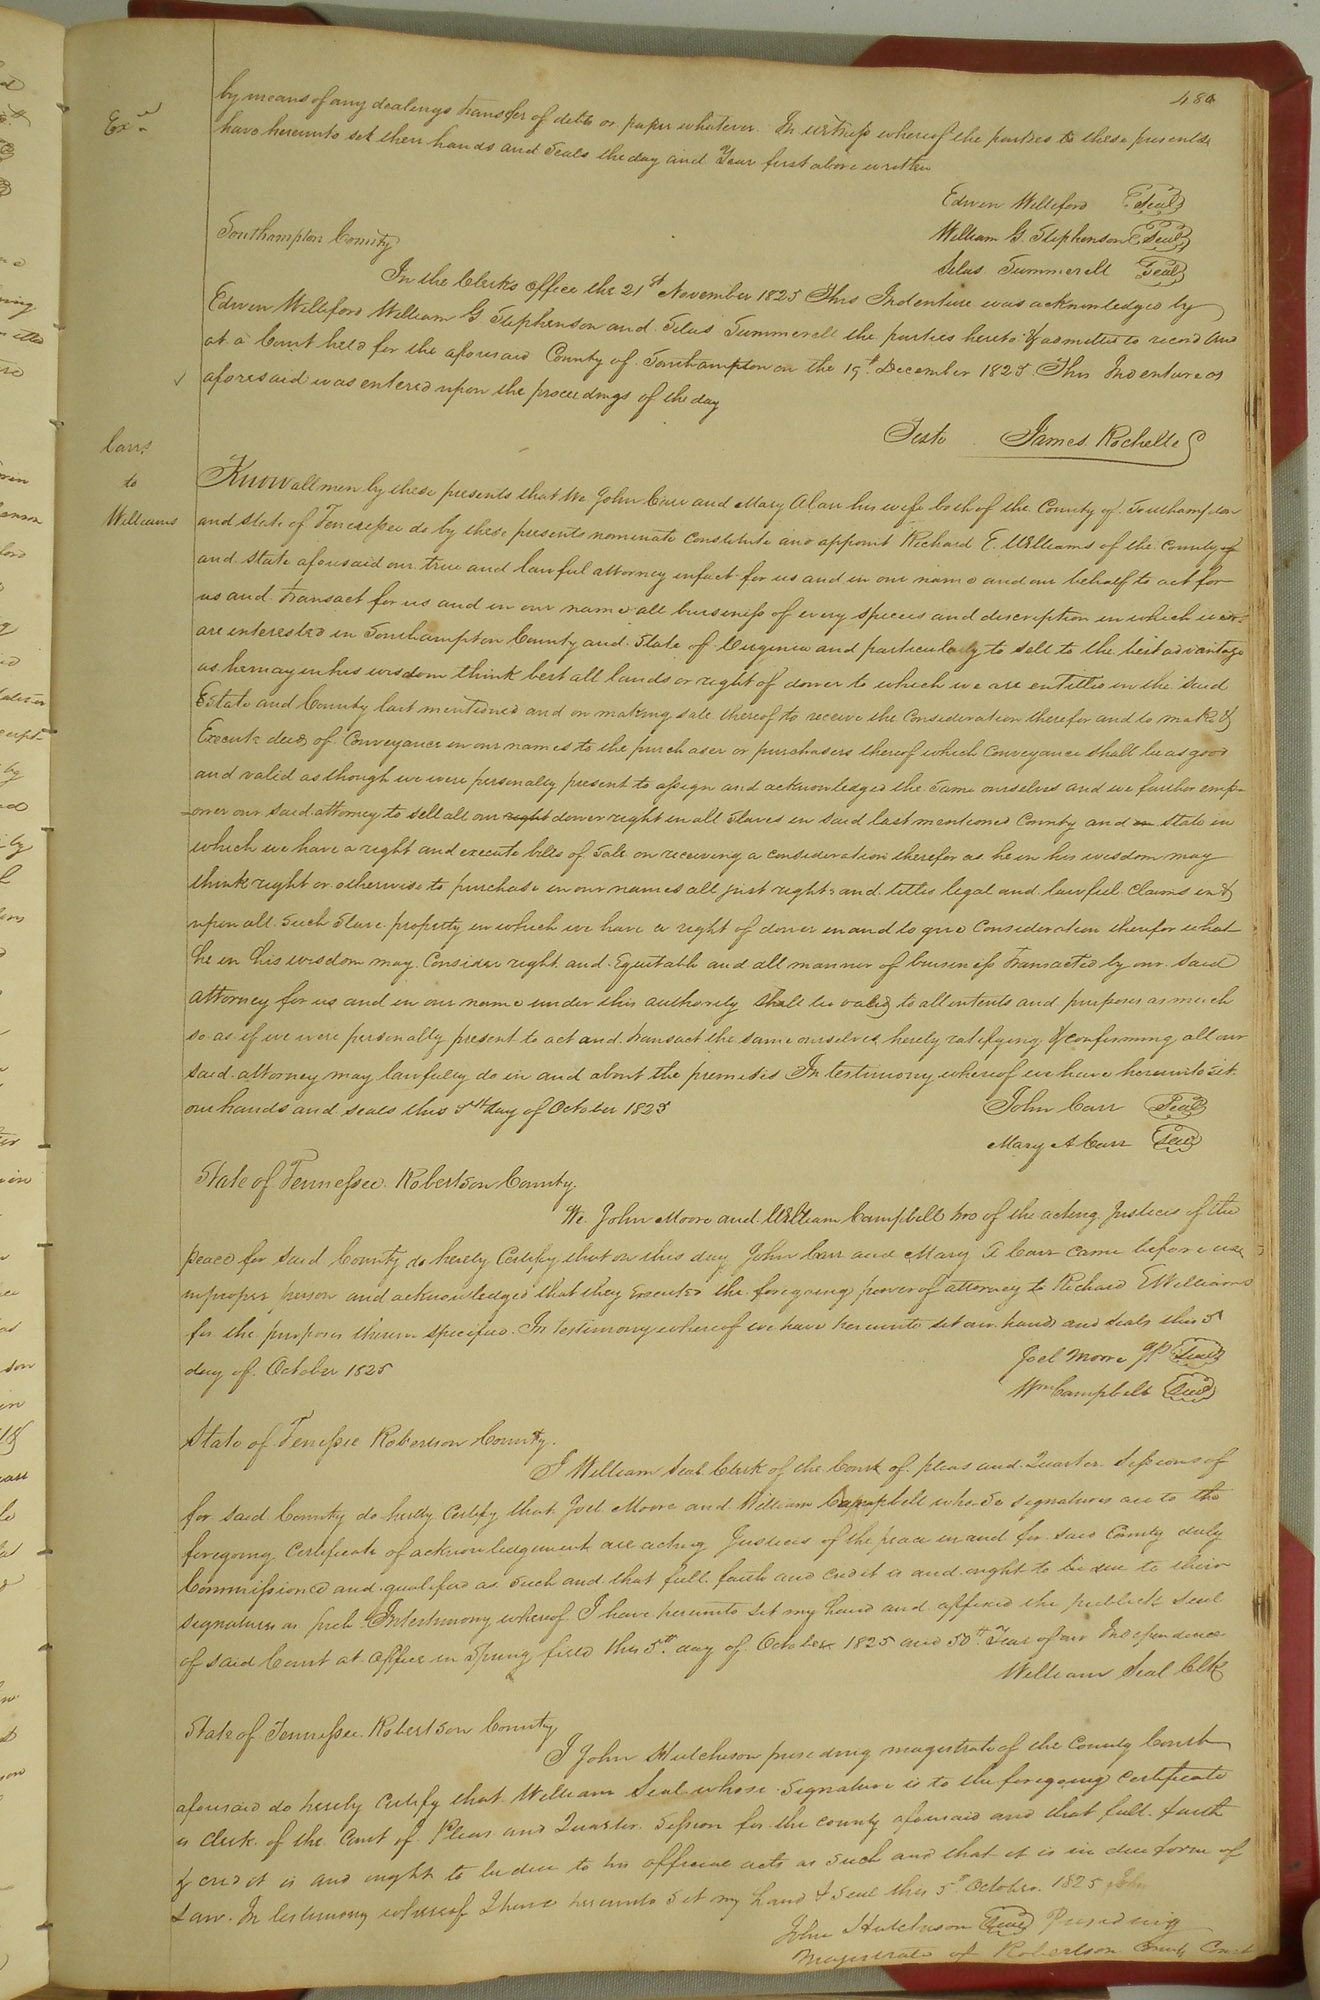 486
Exd
by means of any dealings transfer of debts or paper whatever. In witness whereof the parties to these presents
have hereunto set their hands and Seals the day and Year first above written
Edwin Williford Seal
William G. Stephenson Seal
Silas Summerell Seal
Southampton County
In the Clerks office the 21st November 1825 This Indenture was acknowledged by
Edwin Williford William G Stephenson and Silas Summerell the parties hereto & admitted to record and
at a Court held for the aforesaid County of Southampton on the 19th December 1825 This Indenture as
aforesaid was entered upon the proceedings of the day
Teste James Rochelle
Carrs
to
Williams
Know all men by these presents that We John Carr and Mary A Carr his wife both of the County of Southampton
and State of Tennessee do by these presents nominate constitute and appoint Richard E. Williams of the County of
and State aforesaid our true and lawful attorney infact for us and in our name and our behalf to act for
us and transact for us and in our name all business of every species and discription in which we
are interested in Southampton County and State of Virginia and particularly to sell to the best advantage
as he may in his wisdom think best all lands or right of dower to which we are entitled in the said
Estate and County last mentioned and on making sale thereof to receive the consideration therefor and to make &
Execute deeds of Conveyance in our names to the purchaser or purchasers thereof which conveyance shall be as good
and valid as though we were personally present to assign and acknowledged the same ourselves and we further emp-
-ower our said attorney to sell all our right dower right in all Slaves in said last mentioned County and in state in
which we have a right and execute bills of Sale on receiving a consideration therefor as he in his wisdom may
think right or otherwise to purchase in our names all just rights and titles legal and lawful claims in &
upon all such Slave property in which we have a right of dower in and to give Consideration therefor what
he in his wisdom may Consider right and Equitable and all manner of business transacted by our said
attorney for us and in our name under this authority shall be valid to all intents and purposes as much
so as if we were personally present to act and transact the same ourselves hereby ratifying & confirming all our
said attorney may lawfully do in and about the premises In testimony whereof we have hereunto set
our hands and seals this 5th day of October 1825
John Carr Seal
Mary A Carr Seal
State of Tennessee Robertson County.
We John Moore and William Campbell two of the acting Justices of the
peace for said County do hereby Certify that on this day John Carr and Mary A Carr came before us
in proper person and acknowledged that they executed the foregoing power of attorney to Richard E Williams
for the purposes therein specified. In testimony whereof we have hereunto set our hands and seals this 5
day of October 1825
Joel Moore JP Seal
Wm Campbell Seal
State of Tenessee Robertson County.
I William Seal Clerk of the Court of pleas and Quarter Sessions of
for said County do hereby Certify that Joel Moore and William Campbell whose signatures are to the
foregoing Certificate of acknowledgement are acting Justices of the peace in and for said County duly
Commissioned and qualified as such and that full faith and credit is and ought to be due to their
signatures as such In testimony whereof I have hereunto set my hand and affixed the publick seal
of said Court at office in Springfield this 5th day of October 1825 and 50th Year of our Independence
William Seal Clk
State of Tennessee Robertson County,
I John Hutchison presiding magistrate of the County Court
aforesaid do hereby Certify that William Seal whose signature is to the foregoing Certificate
is Clerk of the Court of Pleas and Quarter Session for the county aforesaid and that full faith
& credit is and ought to be due to his official acts as such and that it is in due form of
Law. In testimony whereof I have hereunto set my hand & Seal this 5th October 1825 John
John Hutchison Seal Presiding
Magistrate of Robertson County Court